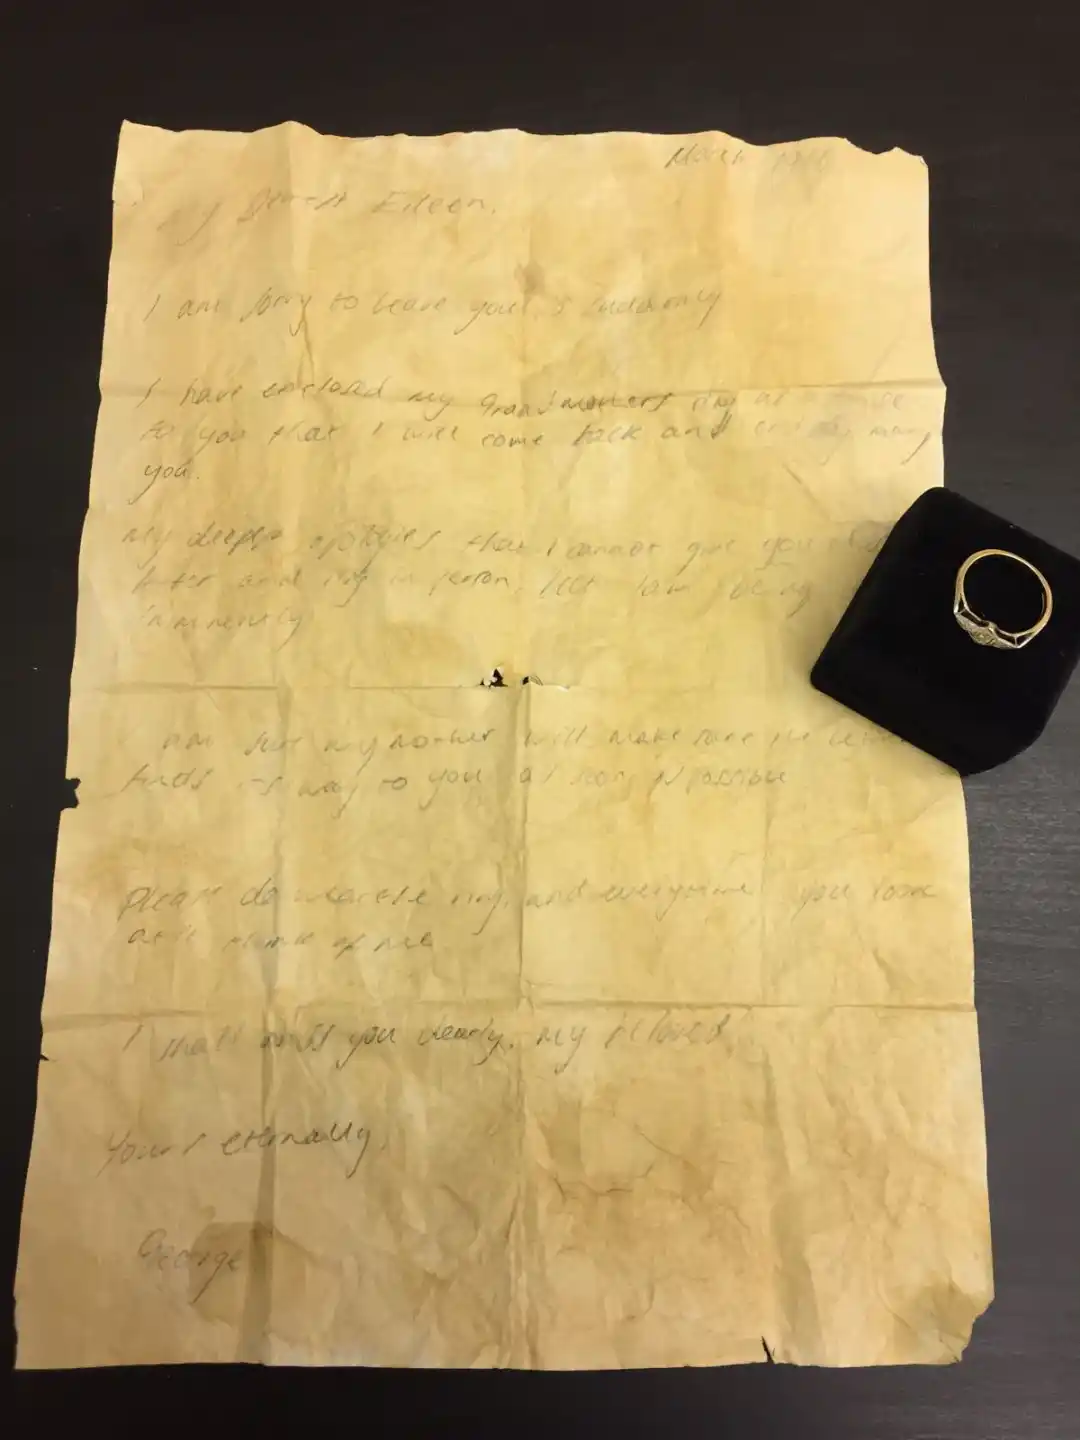 March
Dearest Eileen,
I am sorry to leave you suddenly
I have enclosed my Grandmothers ring
to you that I will come back and marry
you.
My deepest apologies that I cannot give you
letter and ring in person, but I am being
imminently
am sure my mother will make sure the letter
finds its way to you as soon as possible
Please do wear the ring, and everytime you look
at it think of me
I shall miss you dearly, my beloved
Yours eternally,
George